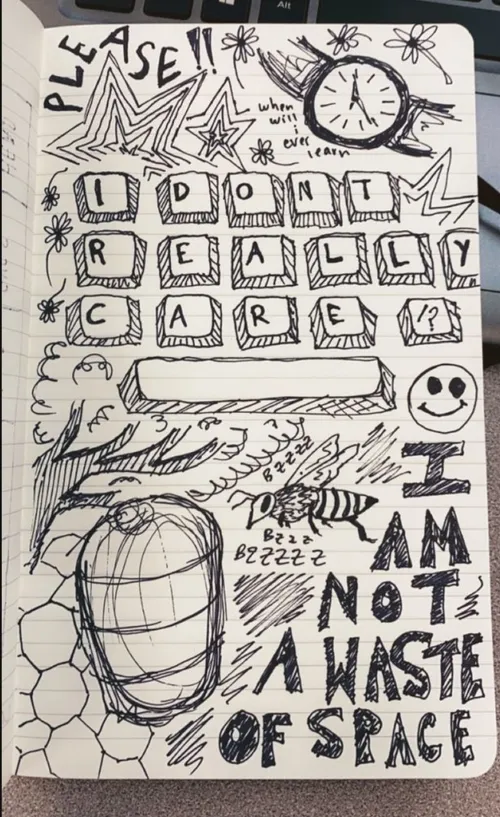 Alt
PLEASE!!
when
will
i
ever
learn
I DONT
REALLY
CARE !?
BZZZZ
BZZZ
BZZZZZ
I
AM
NOT
A WASTE
OF SPACE